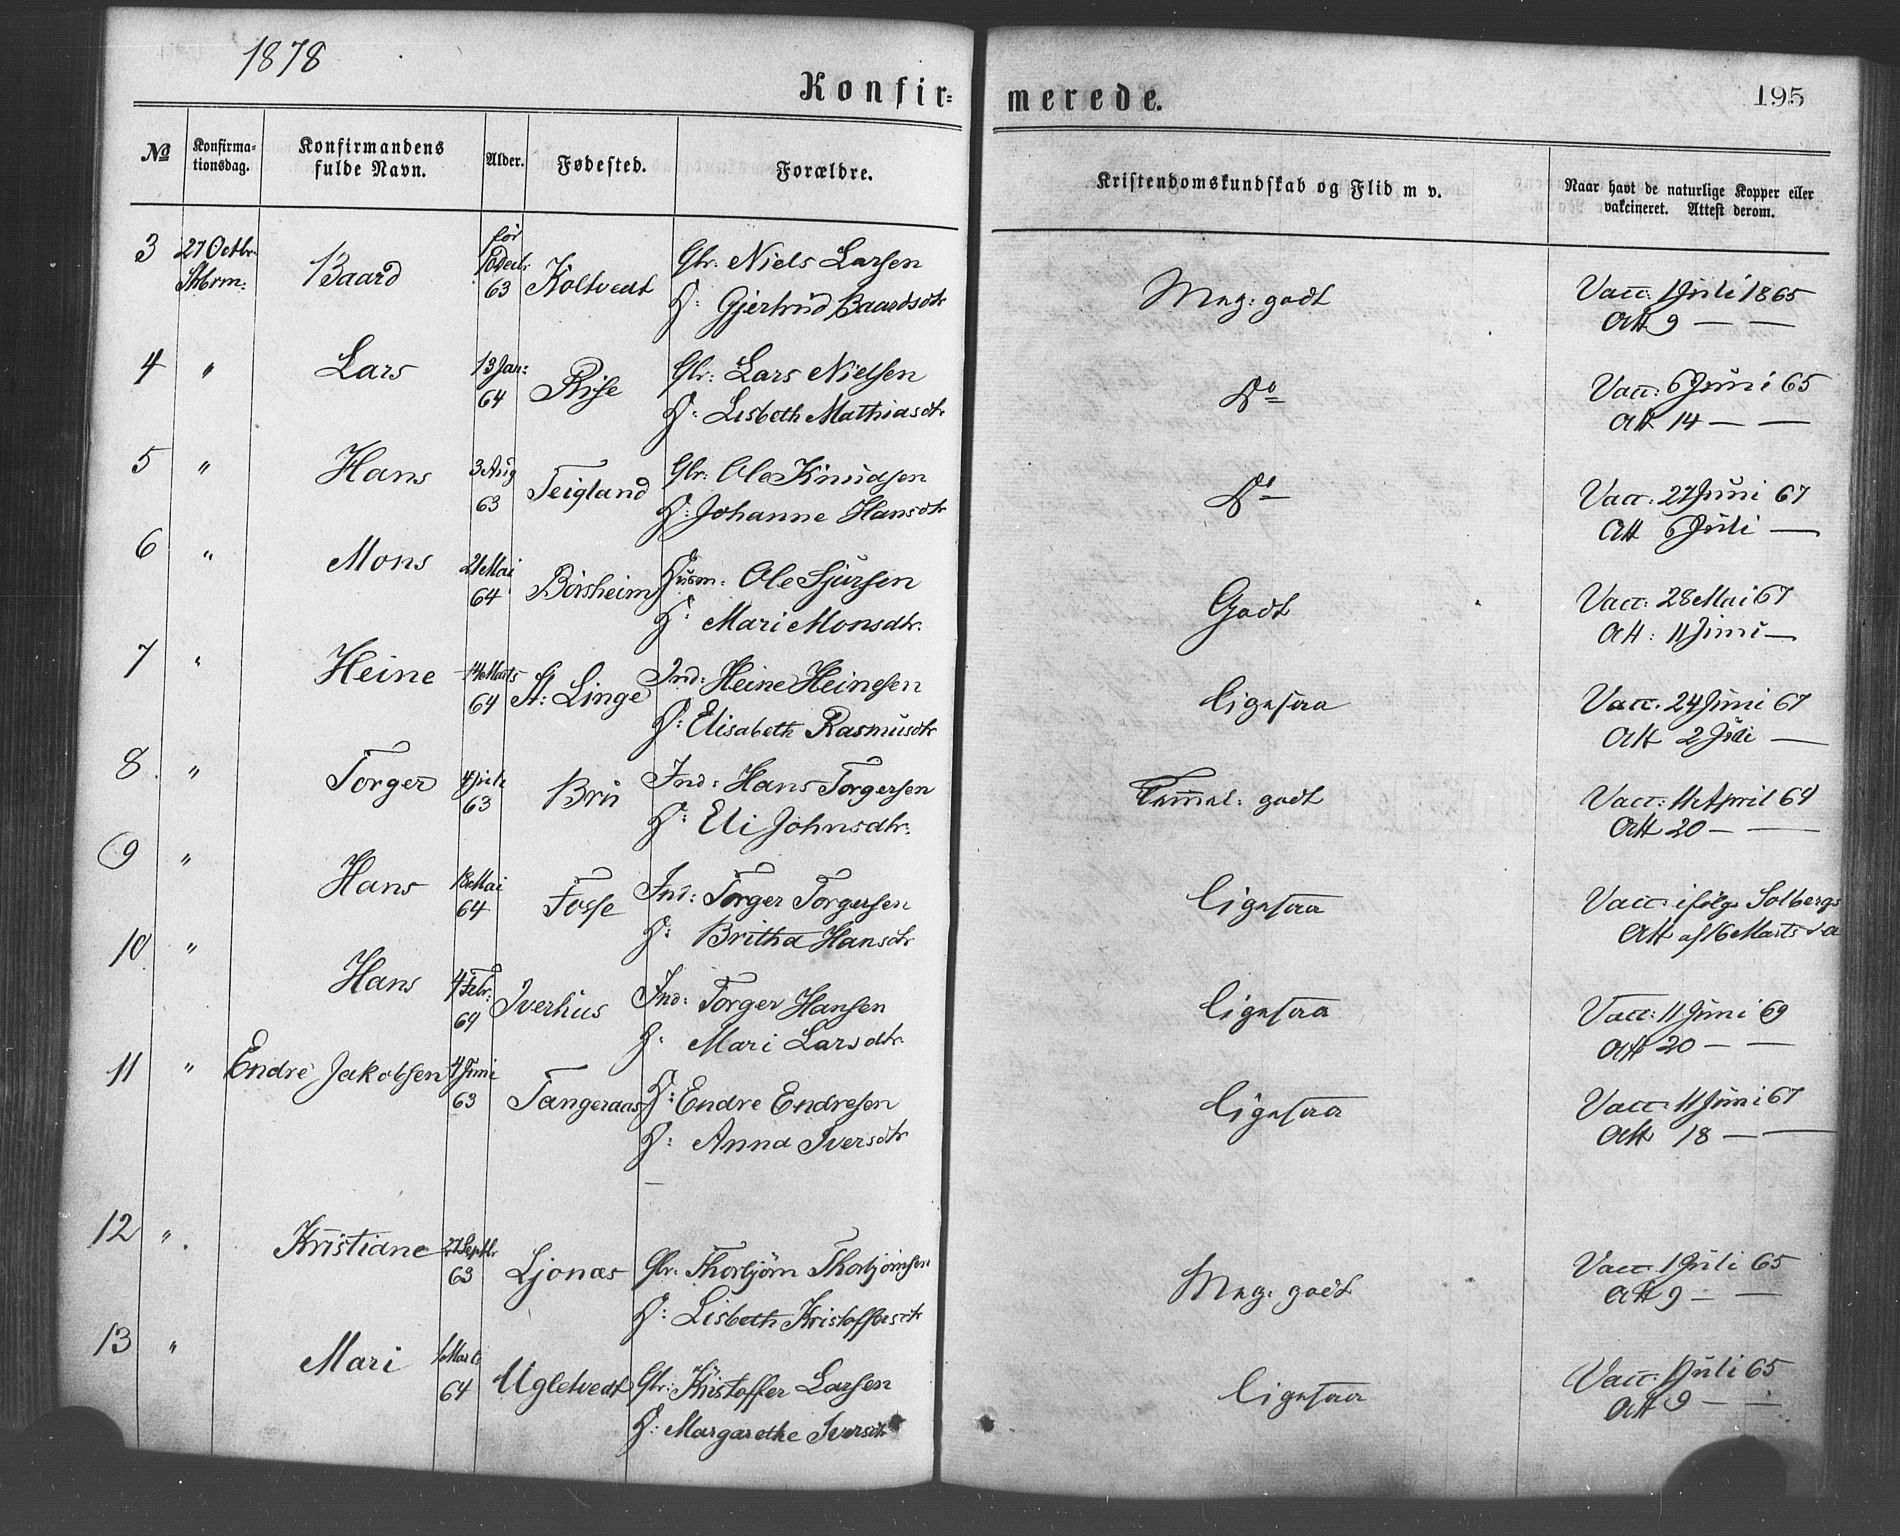 1878
Konfir=
merede.
195
No
Konfirma-
tionsdag.
Konfirmandens
fulde Navn.
Alder.
Fødested.
Forældre.
Kristendomskundskab og Flid m v.
Naar havt de naturlige Kopper eller
vakcineret. Attest derom.
3 27 Octbr. Baard 63 Koltvedt Gbr. Niels Larsen
H: Gjertrud Baardsdtr
Meg: godt
Vacc: 1 Juli 1865
Att 9 — —
4 " Lars 13 Jan: 64 Rise Gbr: Lars Nielsen
H: Lisbeth Mathiasdtr
Do
Vacc: 6 Juni 65
Att 14 — —
5 " Hans 3 Aug 63 Teigland Gbr: Ole Knudsen
H: Johanne Hansdtr
Do
Vacc: 27 Juni 67
Att 6 Juli —
6 " Mons 21 Mai 64 Börsheim Husm: Ole Sjursen
H: Mari Monsdtr.
Godt
Vacc: 28 Mai 67
Att: 11 Juni —
7 " Heine 14 Marts 64 St: Linge Ind: Heine Heinesen
H: Elisabeth Rasmusdtr
ligesaa
Vacc. 24 Juni 67
Att 2 Juli —
8. " Torger 4 Juli 63 Bru Ind: Hans Torgersen
H: Eli Johnsdtr:
Temmel: godt
Vacc: 11 April 64
Att 20 — —
9 " Hans 18 Mai 64 Fosse Ind: Torger Torgersen
H: Britha Hansdtr
ligesaa
Vacc: ifölge Solbergs
Att af 16 Marts d a
10. " Hans 4 Febr. 64 Iverhus Ind: Torger Hansen
H. Mari Larsdtr.
ligesaa
Vacc: 11 Juni 69
Att 20 — —
11 " Endre Jakobsen 4 Juni 63 Tangeraas H: Endre Endresen
H: Anna Iversdtr
ligesaa
Vacc: 11 Juni 67
Att 18 — —
12 " Kristiane 27 Septbr 63 Ljonæs Gbr. Thorbjörn Thorbjörnsen
H: Lisbeth Kristoffersdtr
Meg: godt
Vacc. 1 Juli 65
Att 9 — —
13 " Mari 1 Marts 64 Ugletvedt Gbr: Kristoffer Larsen
H: Margarethe Iversdtr
ligesaa
Vacc. 1 Juli 65
Att 9 — —